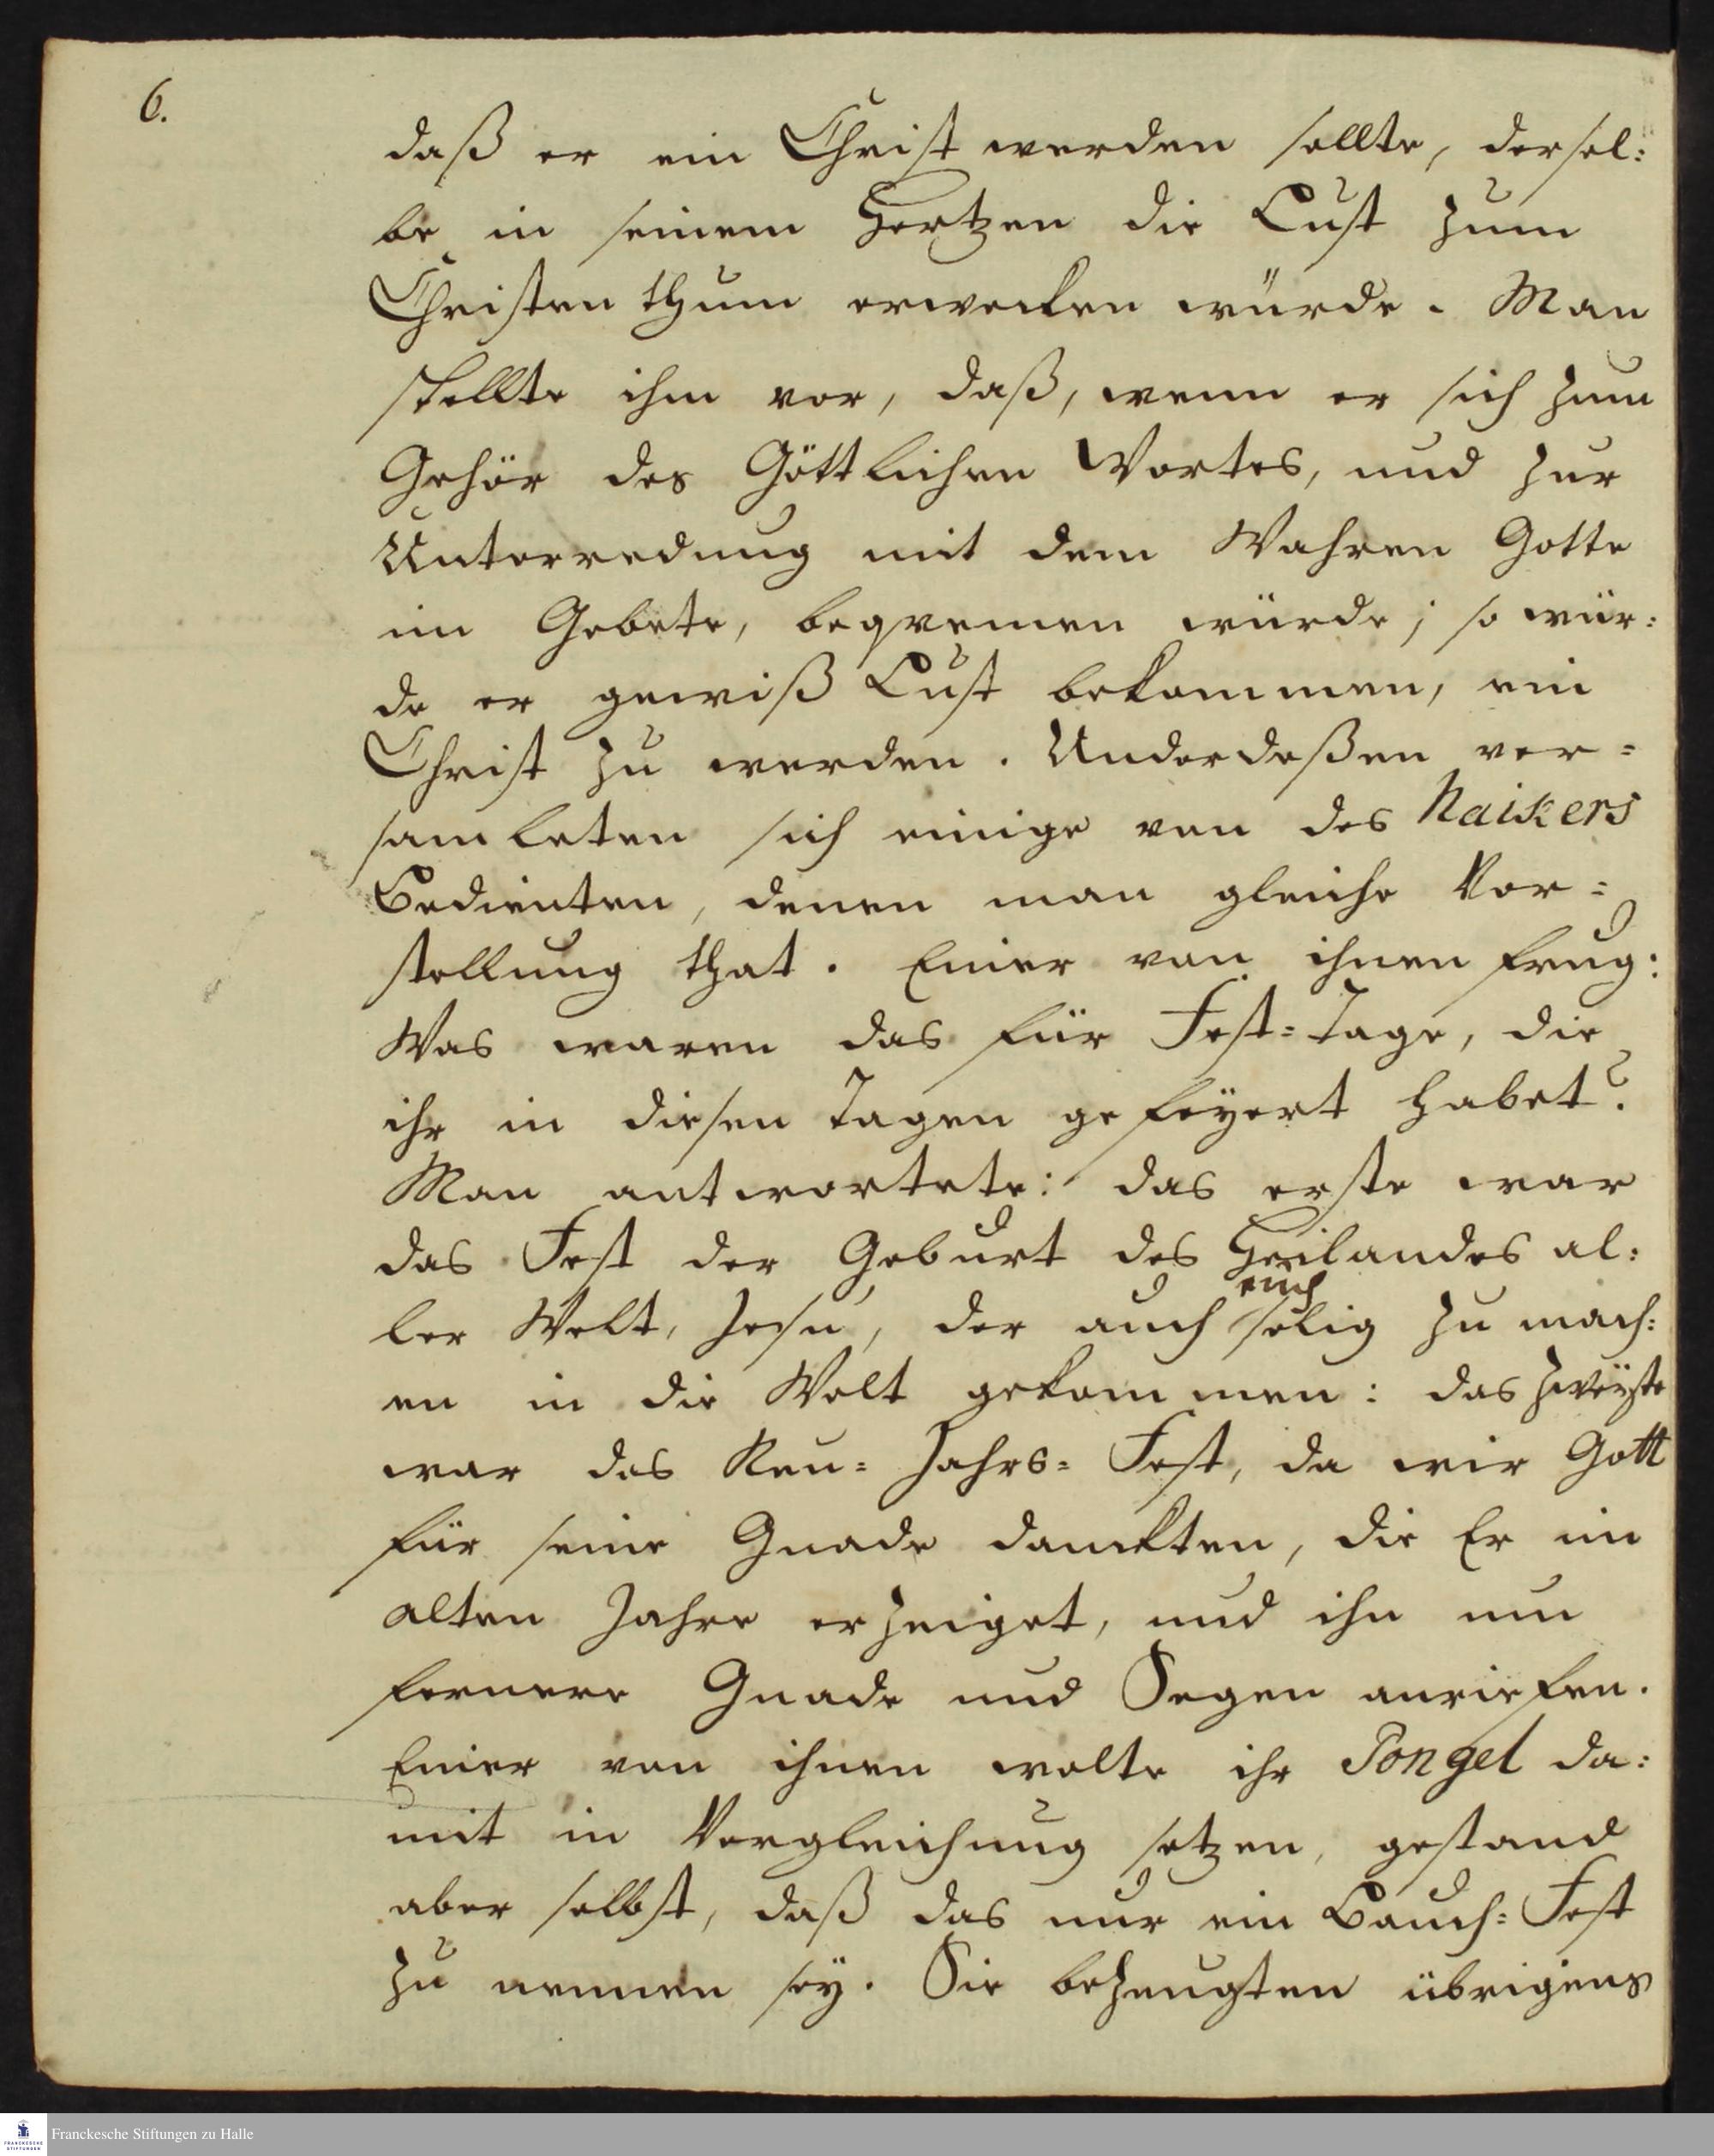 6.
daß er ein Christ werden sollte, dersel:
be in seinem Hertzen die Lust zum
Christenthum erwecken würde. Man
stellte ihm vor, daß, wenn er sich zum
Gehör des Göttlichen Wortes, und zur
Unterredung mit dem Wahren Gotte
im Gebete, beqvemen würde; so wür:
de er gewiß Lust bekommen, ein
Christ zu werden. Underdeßen ver=
samleten sich einige von des Naikers
Bedienten, denen man gleiche Vor=
stellung that. Einer von ihnen frug:
Was waren das für Fest=Tage, die
ihr in diesen Tagen gefeyert habet?
Man antwortete: das erste war
das Fest der Geburt des Heilandes al:
euch
ler Welt, Jesu, der auch selig zu mach:
en in die Welt gekommen: das zweyte
war das Neu=Jahrs=Fest, da wir Gott
für seine Gnade danckten, die Er im
alten Jahre erzeiget, und ihn um
fernere Gnade und Segen anriefen.
Einer von ihnen wolte ihr Pongel da:
mit in Vergleichung setzen, gestand
aber selbst, daß das nur ein Bauch=Fest
zu nennen sey. Sie bezeugten übrigens
Franckesche Stiftungen zu Halle
FRANCKESCHE
STIFTUNGEN